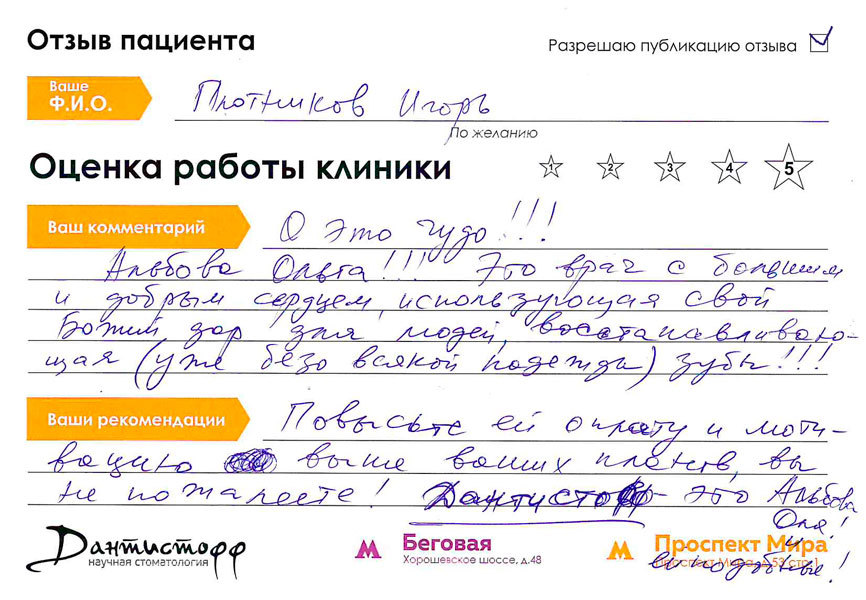 Отзыв пациента
Разрешаю публикацию отзыва
Ваше
Ф.И.О.
Плотников Игорь
По желанию
Оценка работы клиники
1 2 3 4 5
Ваш комментарий
О это чудо!!!
Альбова Ольга!!! Это врач с большим
и добрым сердцем, использующая свой
Божий дар для людей, восстанавливаю-
щая (уже безо всякой надежды) зубы!!!
Ваши рекомендации
Повысьте ей оплату и моти-
вацию выше ваших планов, вы
не пожалеете! Дантистофф - это Альбова
Оля!
и
ей подобные!
Дантистофф
научная стоматология
М Беговая
Хорошевское шоссе, д.48
М Проспект Мира
Проспект Мира, д.53 стр.1